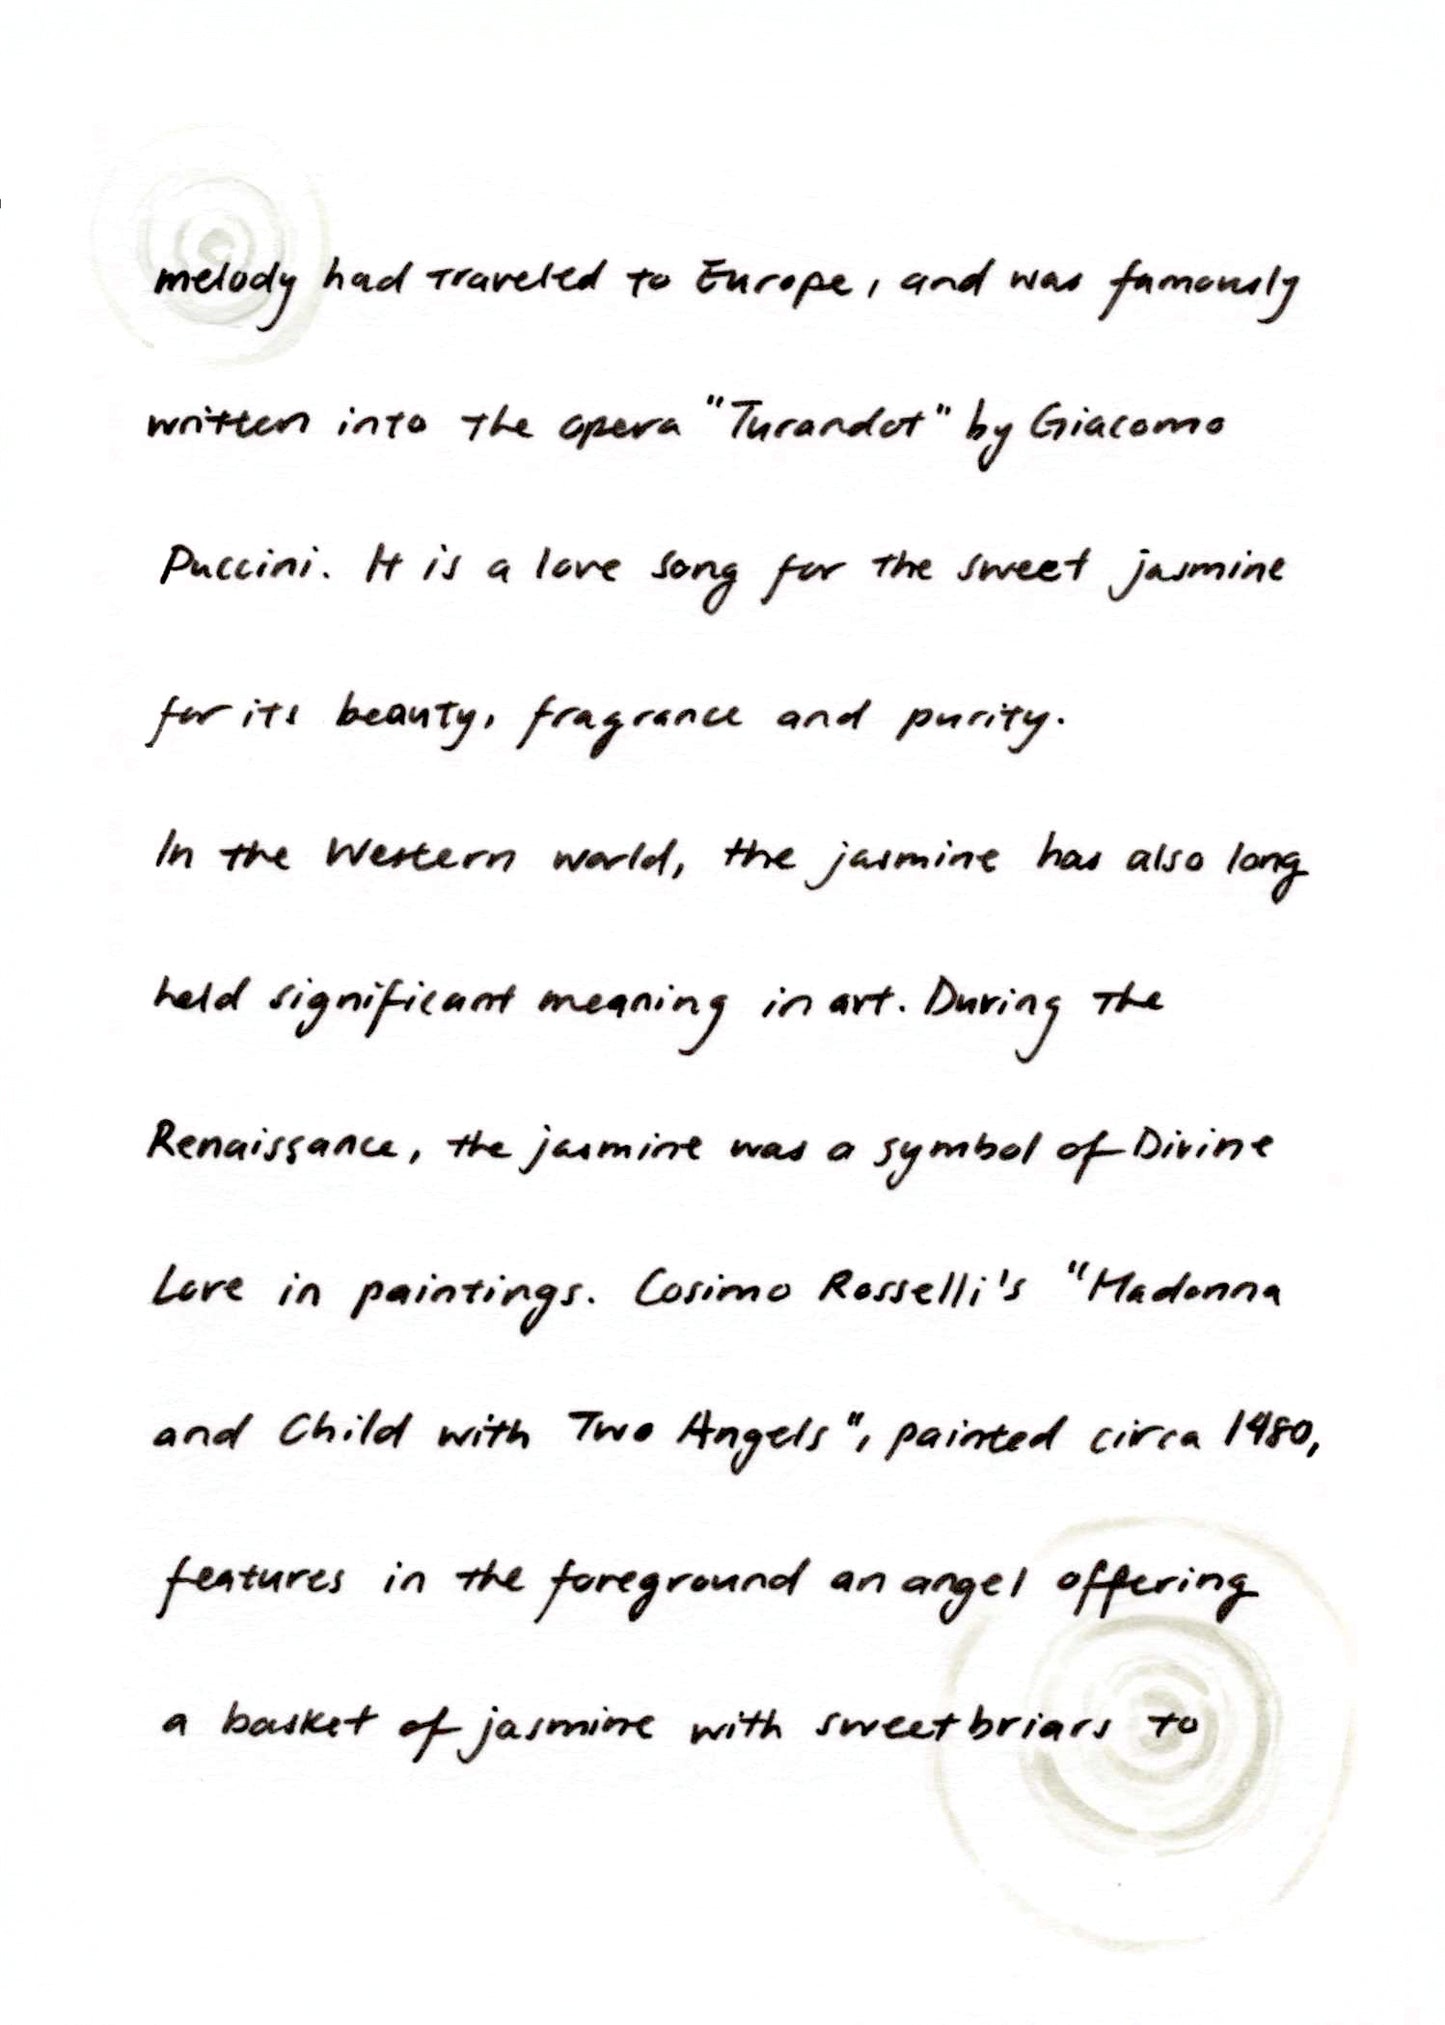 melody had traveled to Europe, and was famously
written into the opera "Turandot" by Giacomo
Puccini. It is a love song for the sweet jasmine
for its beauty, fragrance and purity.
In the Western world, the jasmine has also long
held significant meaning in art. During the
Renaissance, the jasmine was a symbol of Divine
Love in paintings. Cosimo Rosselli's "Madonna
and Child with Two Angels", painted circa 1480,
features in the foreground an angel offering
a basket of jasmine with sweetbriars to